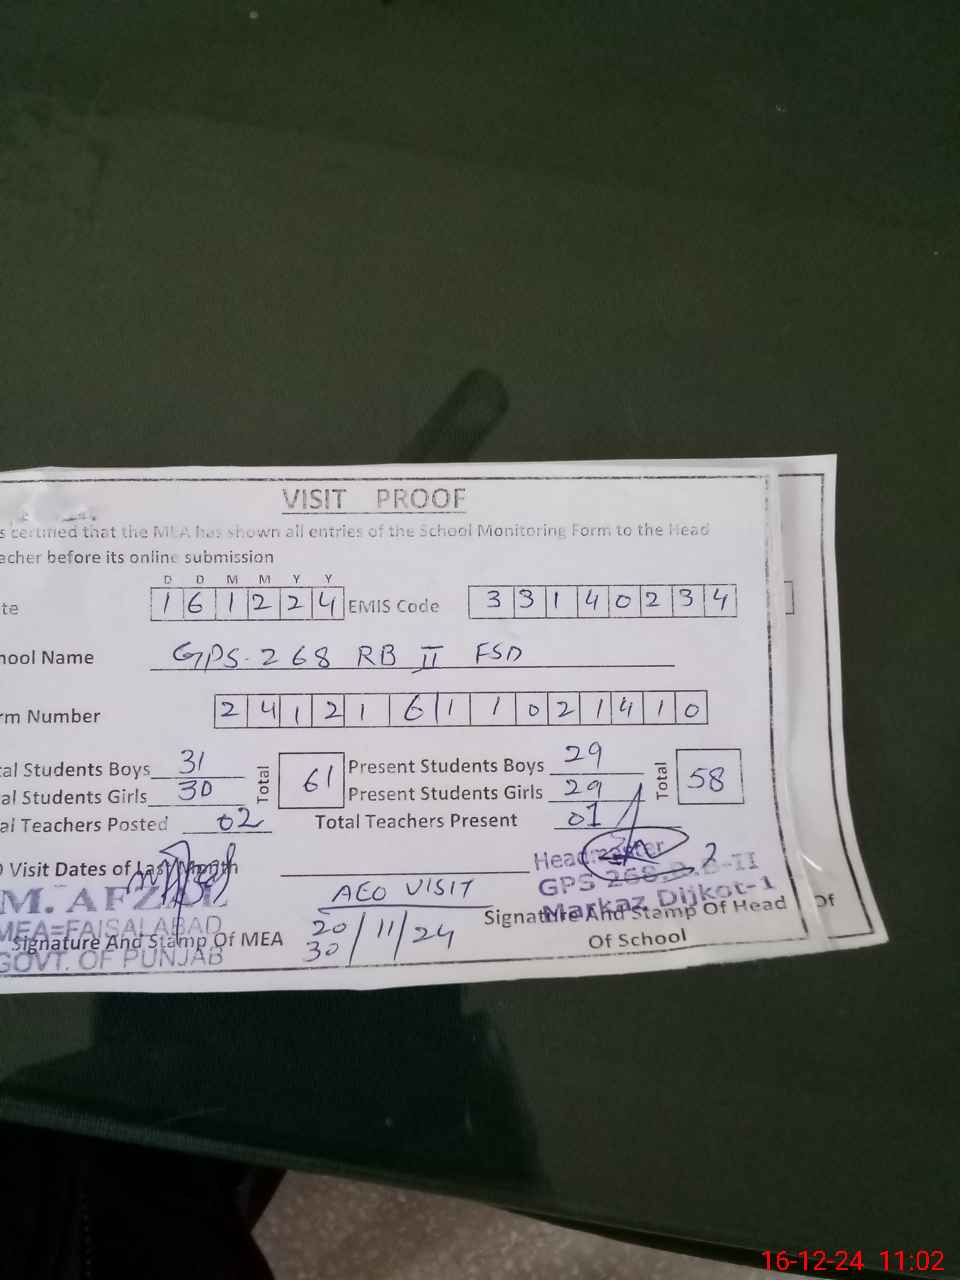 VISIT PROOF
s certified that the MEA has shown all entries of the School Monitoring Form to the Head
acher before its online submission
D D M M Y Y
te 1 6 1 2 2 4 EMIS Code 3 3 1 4 0 2 3 4
hool Name GPS. 268 RB II FSD
rm Number 2 4 1 2 1 6 1 1 0 2 1 4 1 0
tal Students Boys 31 Total 61 Present Students Boys 29 Total 58
al Students Girls 30 Present Students Girls 29
al Teachers Posted 02 Total Teachers Present 01
O Visit Dates of Last Month
Headmaster
GPS 268 II
Markaz Dijkot-1
M. AFZAL
MEA=FAISALABAD
GOVT. OF PUNJAB
AEO VISIT
20
30 / 11 / 24
Signature And Stamp Of MEA
Signature And Stamp Of Head
Of School
Of
16-12-24 11:02